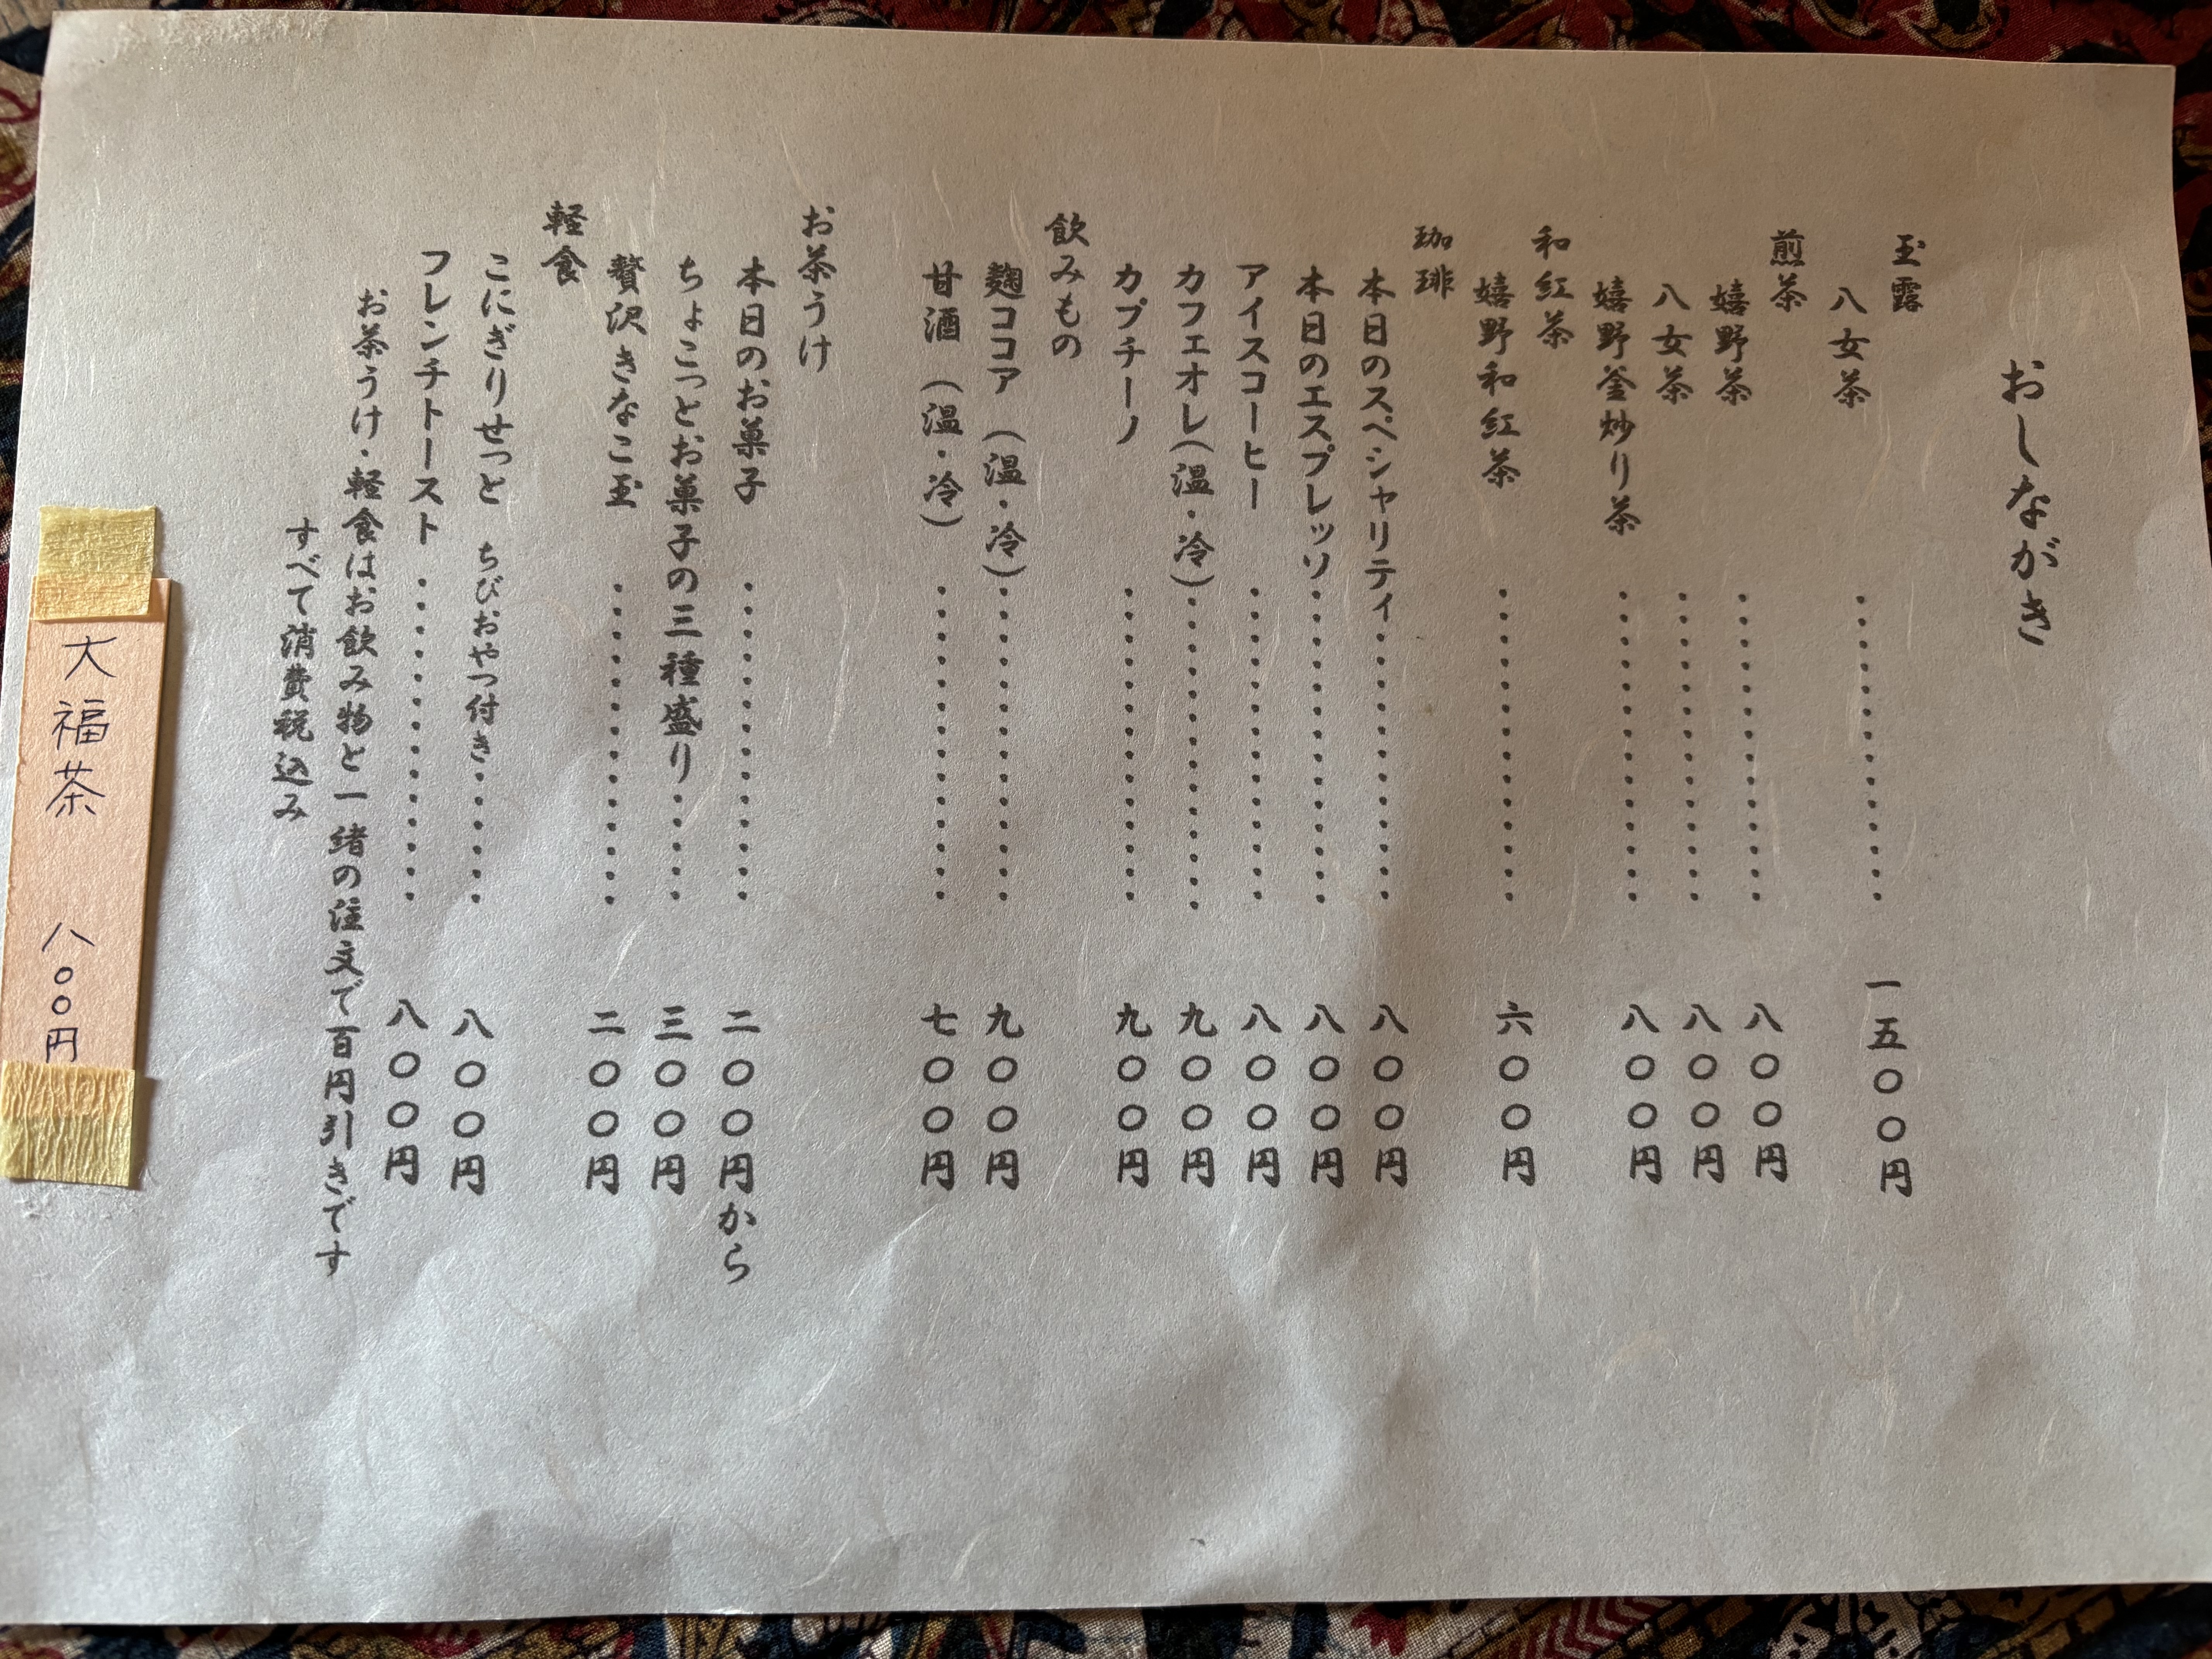 おしながき
玉露
八女茶・・・・・・・・・・・・・・一五〇〇円
煎茶
嬉野茶・・・・・・・・・・・・・・八〇〇円
八女茶・・・・・・・・・・・・・・八〇〇円
嬉野釜炒り茶・・・・・・・・・・・・・・八〇〇円
和紅茶
嬉野和紅茶・・・・・・・・・・・・・・六〇〇円
珈琲
本日のスペシャリティ・・・・・・・・・・・・八〇〇円
本日のエスプレッソ・・・・・・・・・・・・・・八〇〇円
アイスコーヒー・・・・・・・・・・・・・・八〇〇円
カフェオレ(温・冷)・・・・・・・・・・・・・・九〇〇円
カプチーノ・・・・・・・・・・・・・・九〇〇円
飲みもの
麹ココア(温・冷)・・・・・・・・・・・・・・九〇〇円
甘酒(温・冷)・・・・・・・・・・・・・・七〇〇円
お茶うけ
本日のお菓子・・・・・・・・・・・・・・二〇〇円から
ちょこっとお菓子の三種盛り・・・・・三〇〇円
贅沢きなこ玉・・・・・・・・・・・・・・二〇〇円
軽食
こにぎりせっと ちびおやつ付き・・・・・・八〇〇円
フレンチトースト・・・・・・・・・・・・・・八〇〇円
お茶うけ・軽食はお飲み物と一緒の注文で百円引きです
すべて消費税込み
大福茶 八〇〇円